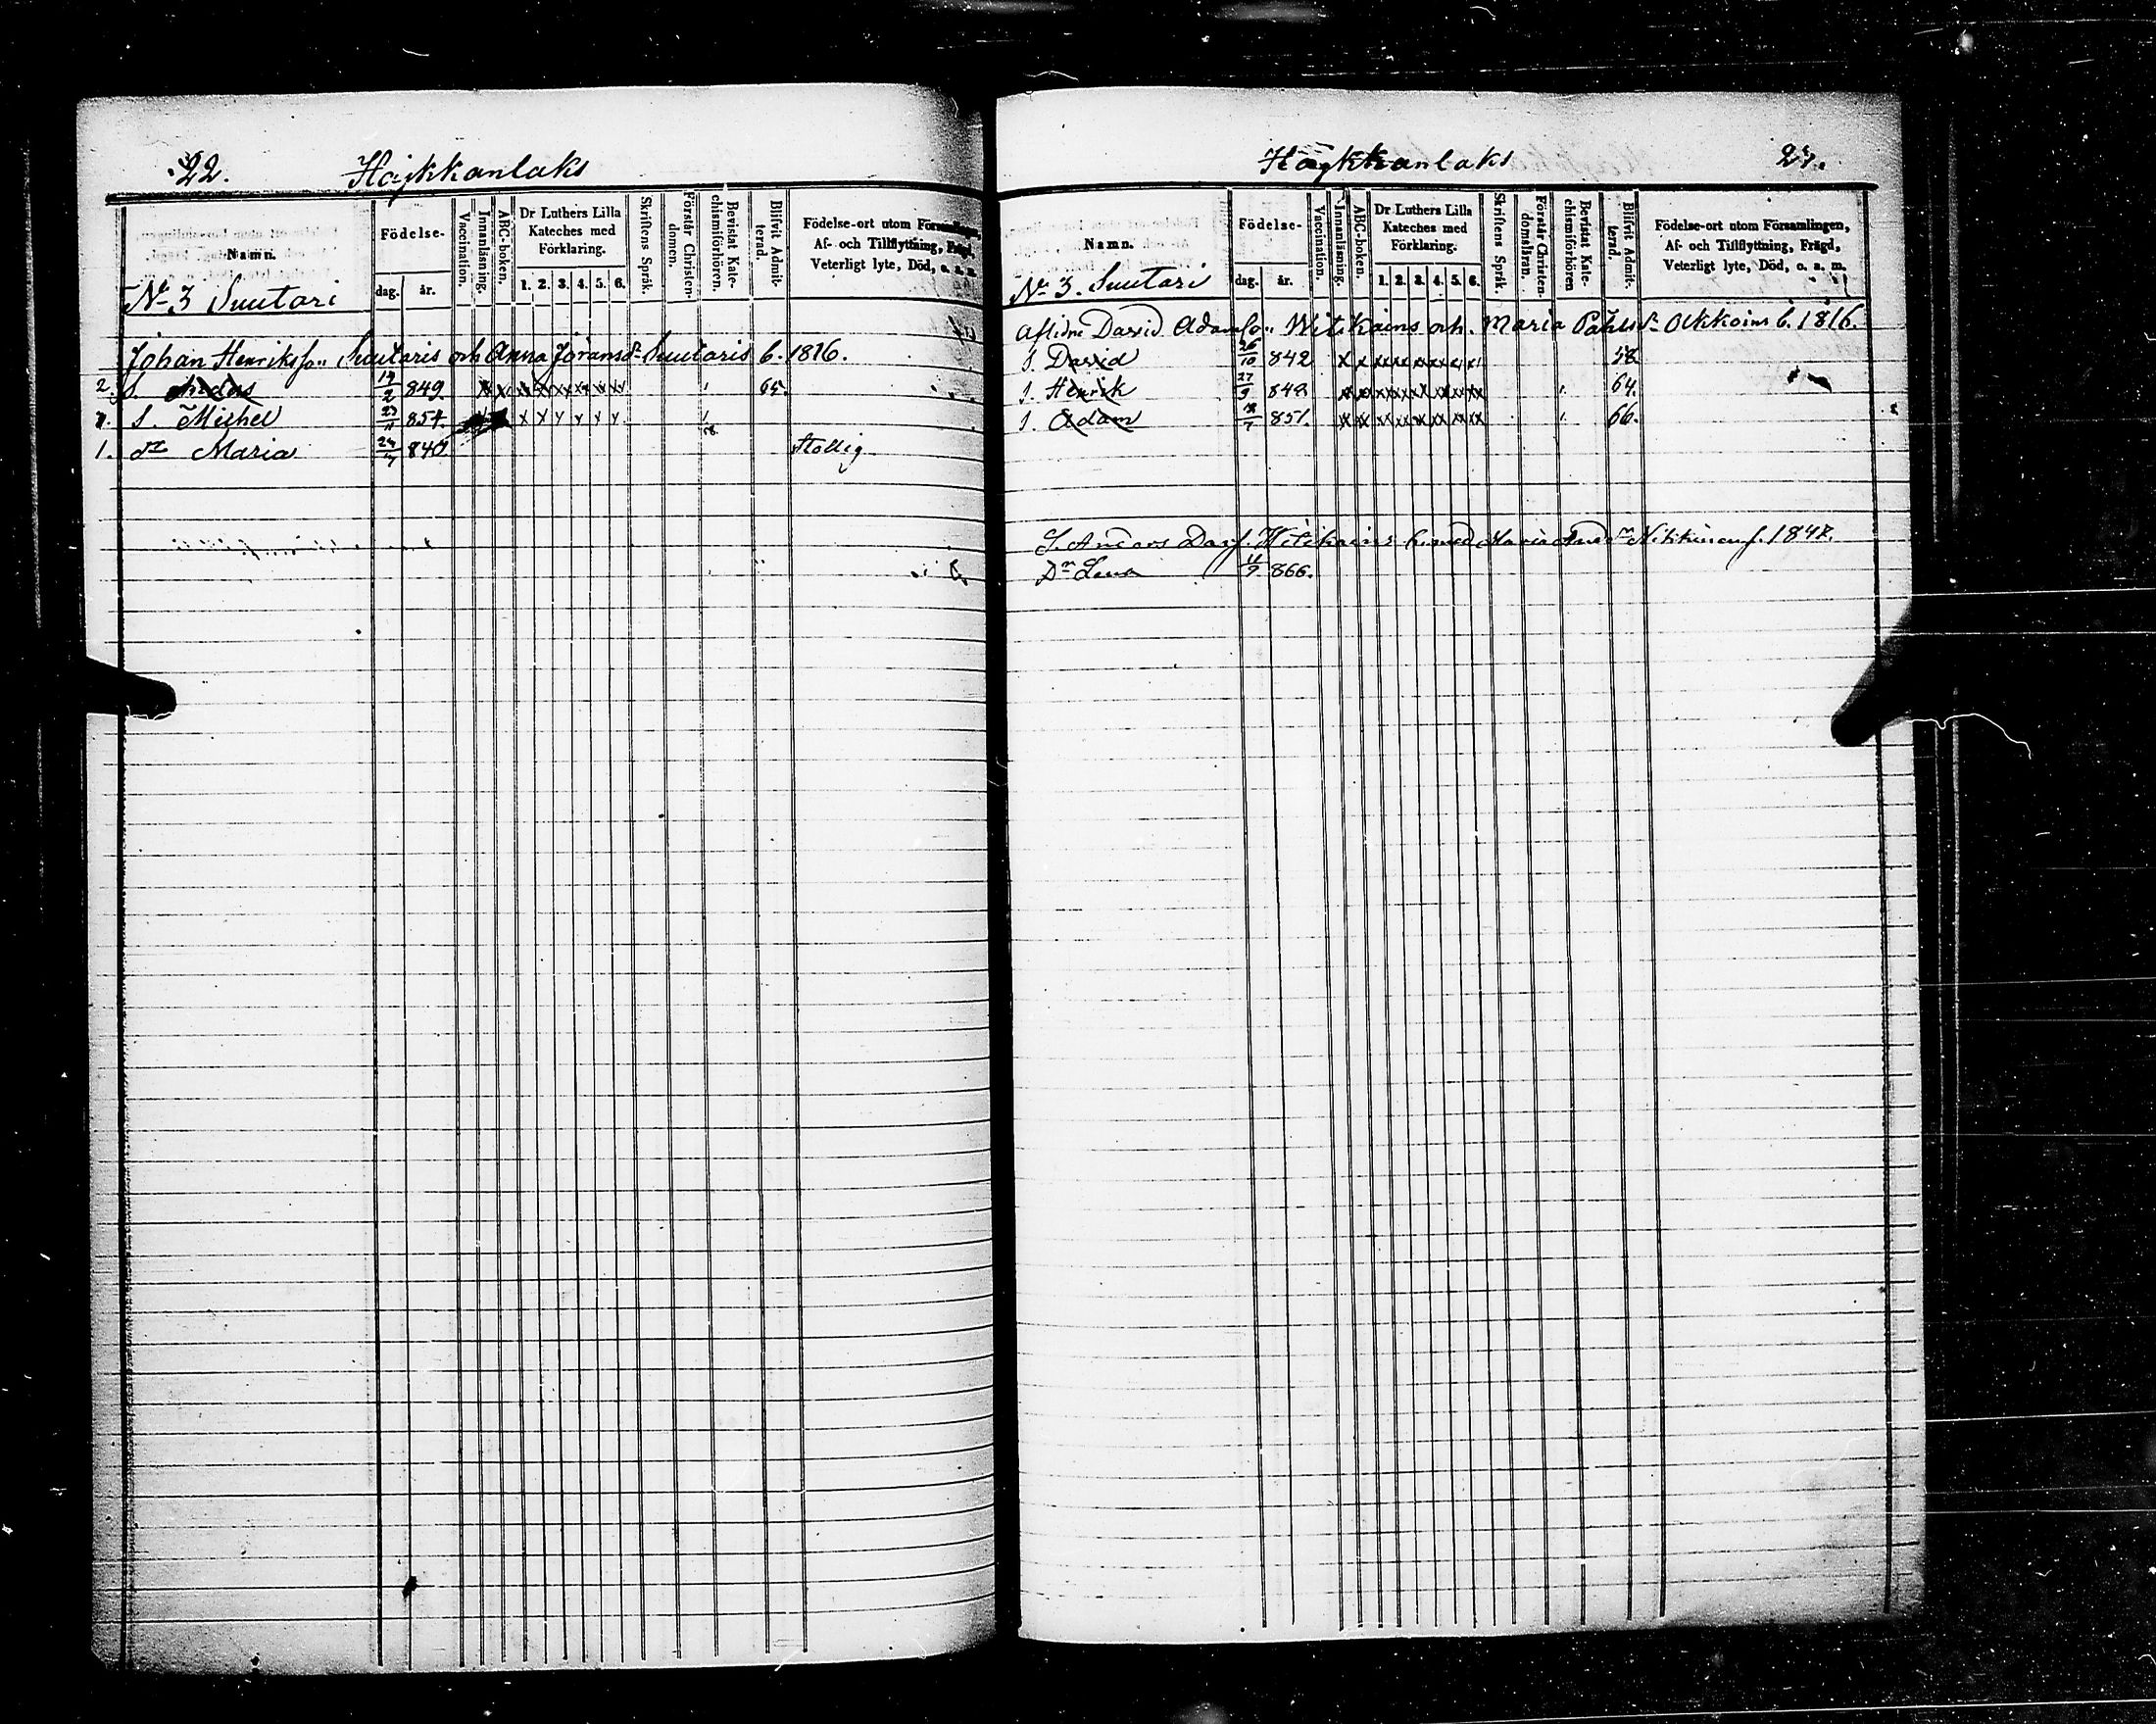 22. Hajkkanlaks
Namn.
Födelse-
dag. år.
Vaccination.
Innanläsning.
ABC-boken.
Dr Luthers Lilla
Kateches med
Förklaring.
1. 2. 3. 4. 5. 6.
Skriftens Språk.
Förstår Christen-
domen.
Bevistat Kate-
chismiförhören.
Blifvit Admit-
terad.
Födelse-ort utom Församlingen,
Af- och Tillflyttning, Frägd,
Veterligt lyte, Död, o. s. m.
No 3 Suutari
Johan Henriksson Suutaris och Anna Jöransdr Suutaris b. 1816.
2. S. Anders 849. x x x x x x x x 65.
S. Michel 23/11 854. x x x x x x
1. dr Maria 24/7 840 Stollig
Hajkkanlaks 27.
Namn.
Födelse-
dag. år.
Vaccination.
Innanläsning.
ABC-boken.
Dr Luthers Lilla
Kateches med
Förklaring.
1. 2. 3. 4. 5. 6.
Skriftens Språk.
Förstår Christen-
domsläran.
Bevistat Kate-
chismiförhören
Blifvit Admit-
terad.
Födelse-ort utom Församlingen,
Af- och Tillflyttning, Frägd,
Veterligt lyte, Död, o. s. m.
No 3. Suutari
Aflidne David Adamson Witikains och Maria Påhlsdr Okkoins b. 1816.
S. David 26/10 842 x x xx xx xx xx xx xx 58
S. Henrik 27/9 848 xx xx xx xx xx xx xx xx 64.
S. Adam 851. xx xx xx xx xx xx xx xx 66.
S. Anders Witikains h. med Maria 1847.
Dr Lena 11/9 866.